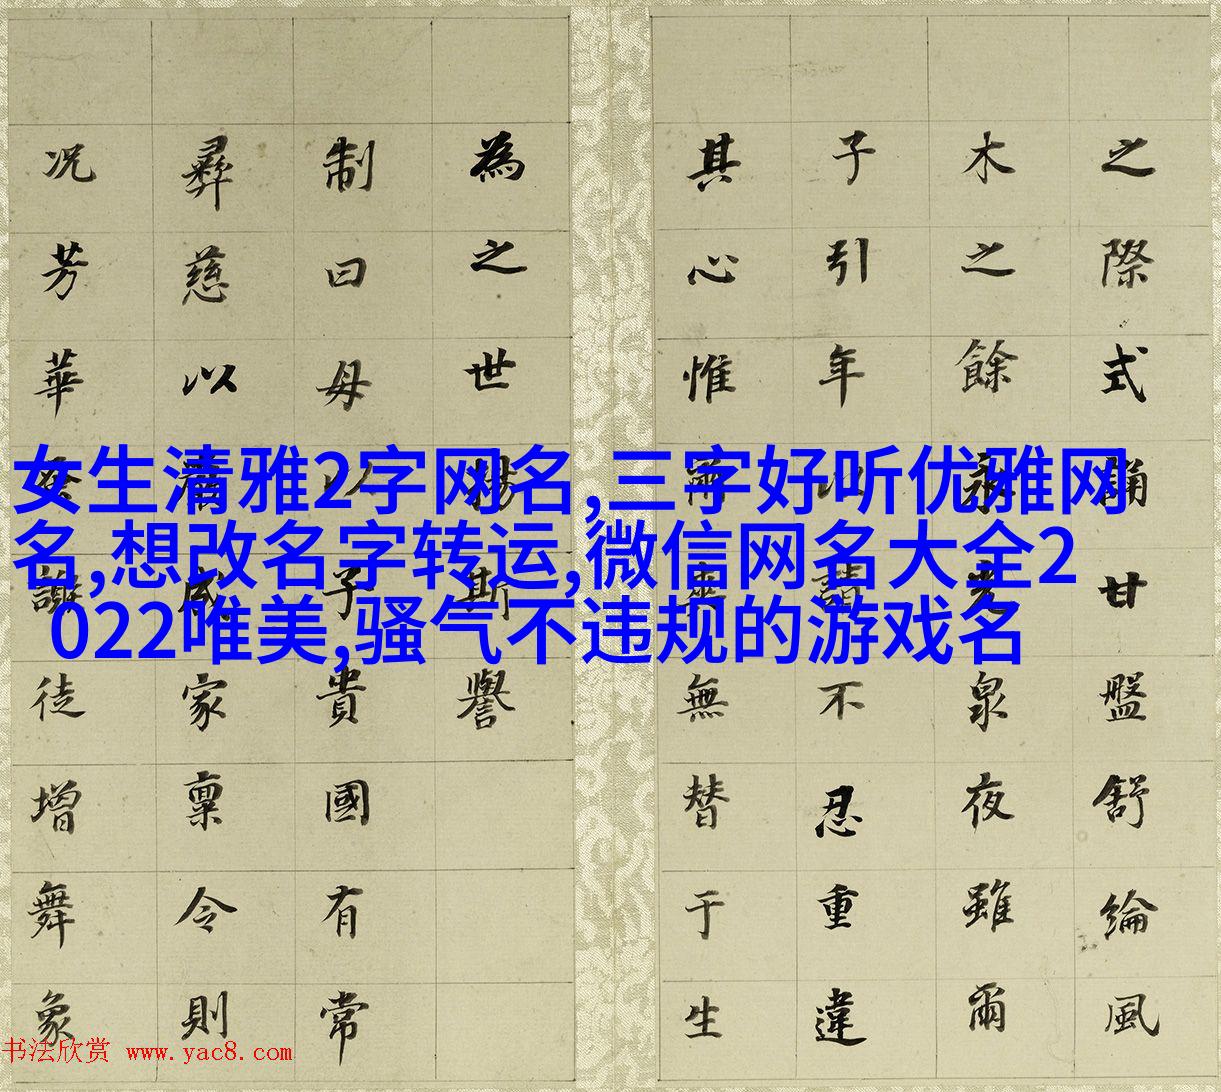 之際式誦甘盤舒綸風
木之餘永光泉夜雖爾
子引年以請不忍重違
其心惟爾無替于生
為之世揚斯譽
制曰母以子貴國有常
彝慈以成家稟令則
况芳華徒增舞象
女生清雅2字网名,三字好听优雅网
名,想改名字转运,微信网名大全2
022唯美,骚气不违规的游戏名
书法欣赏 www.yac8.com